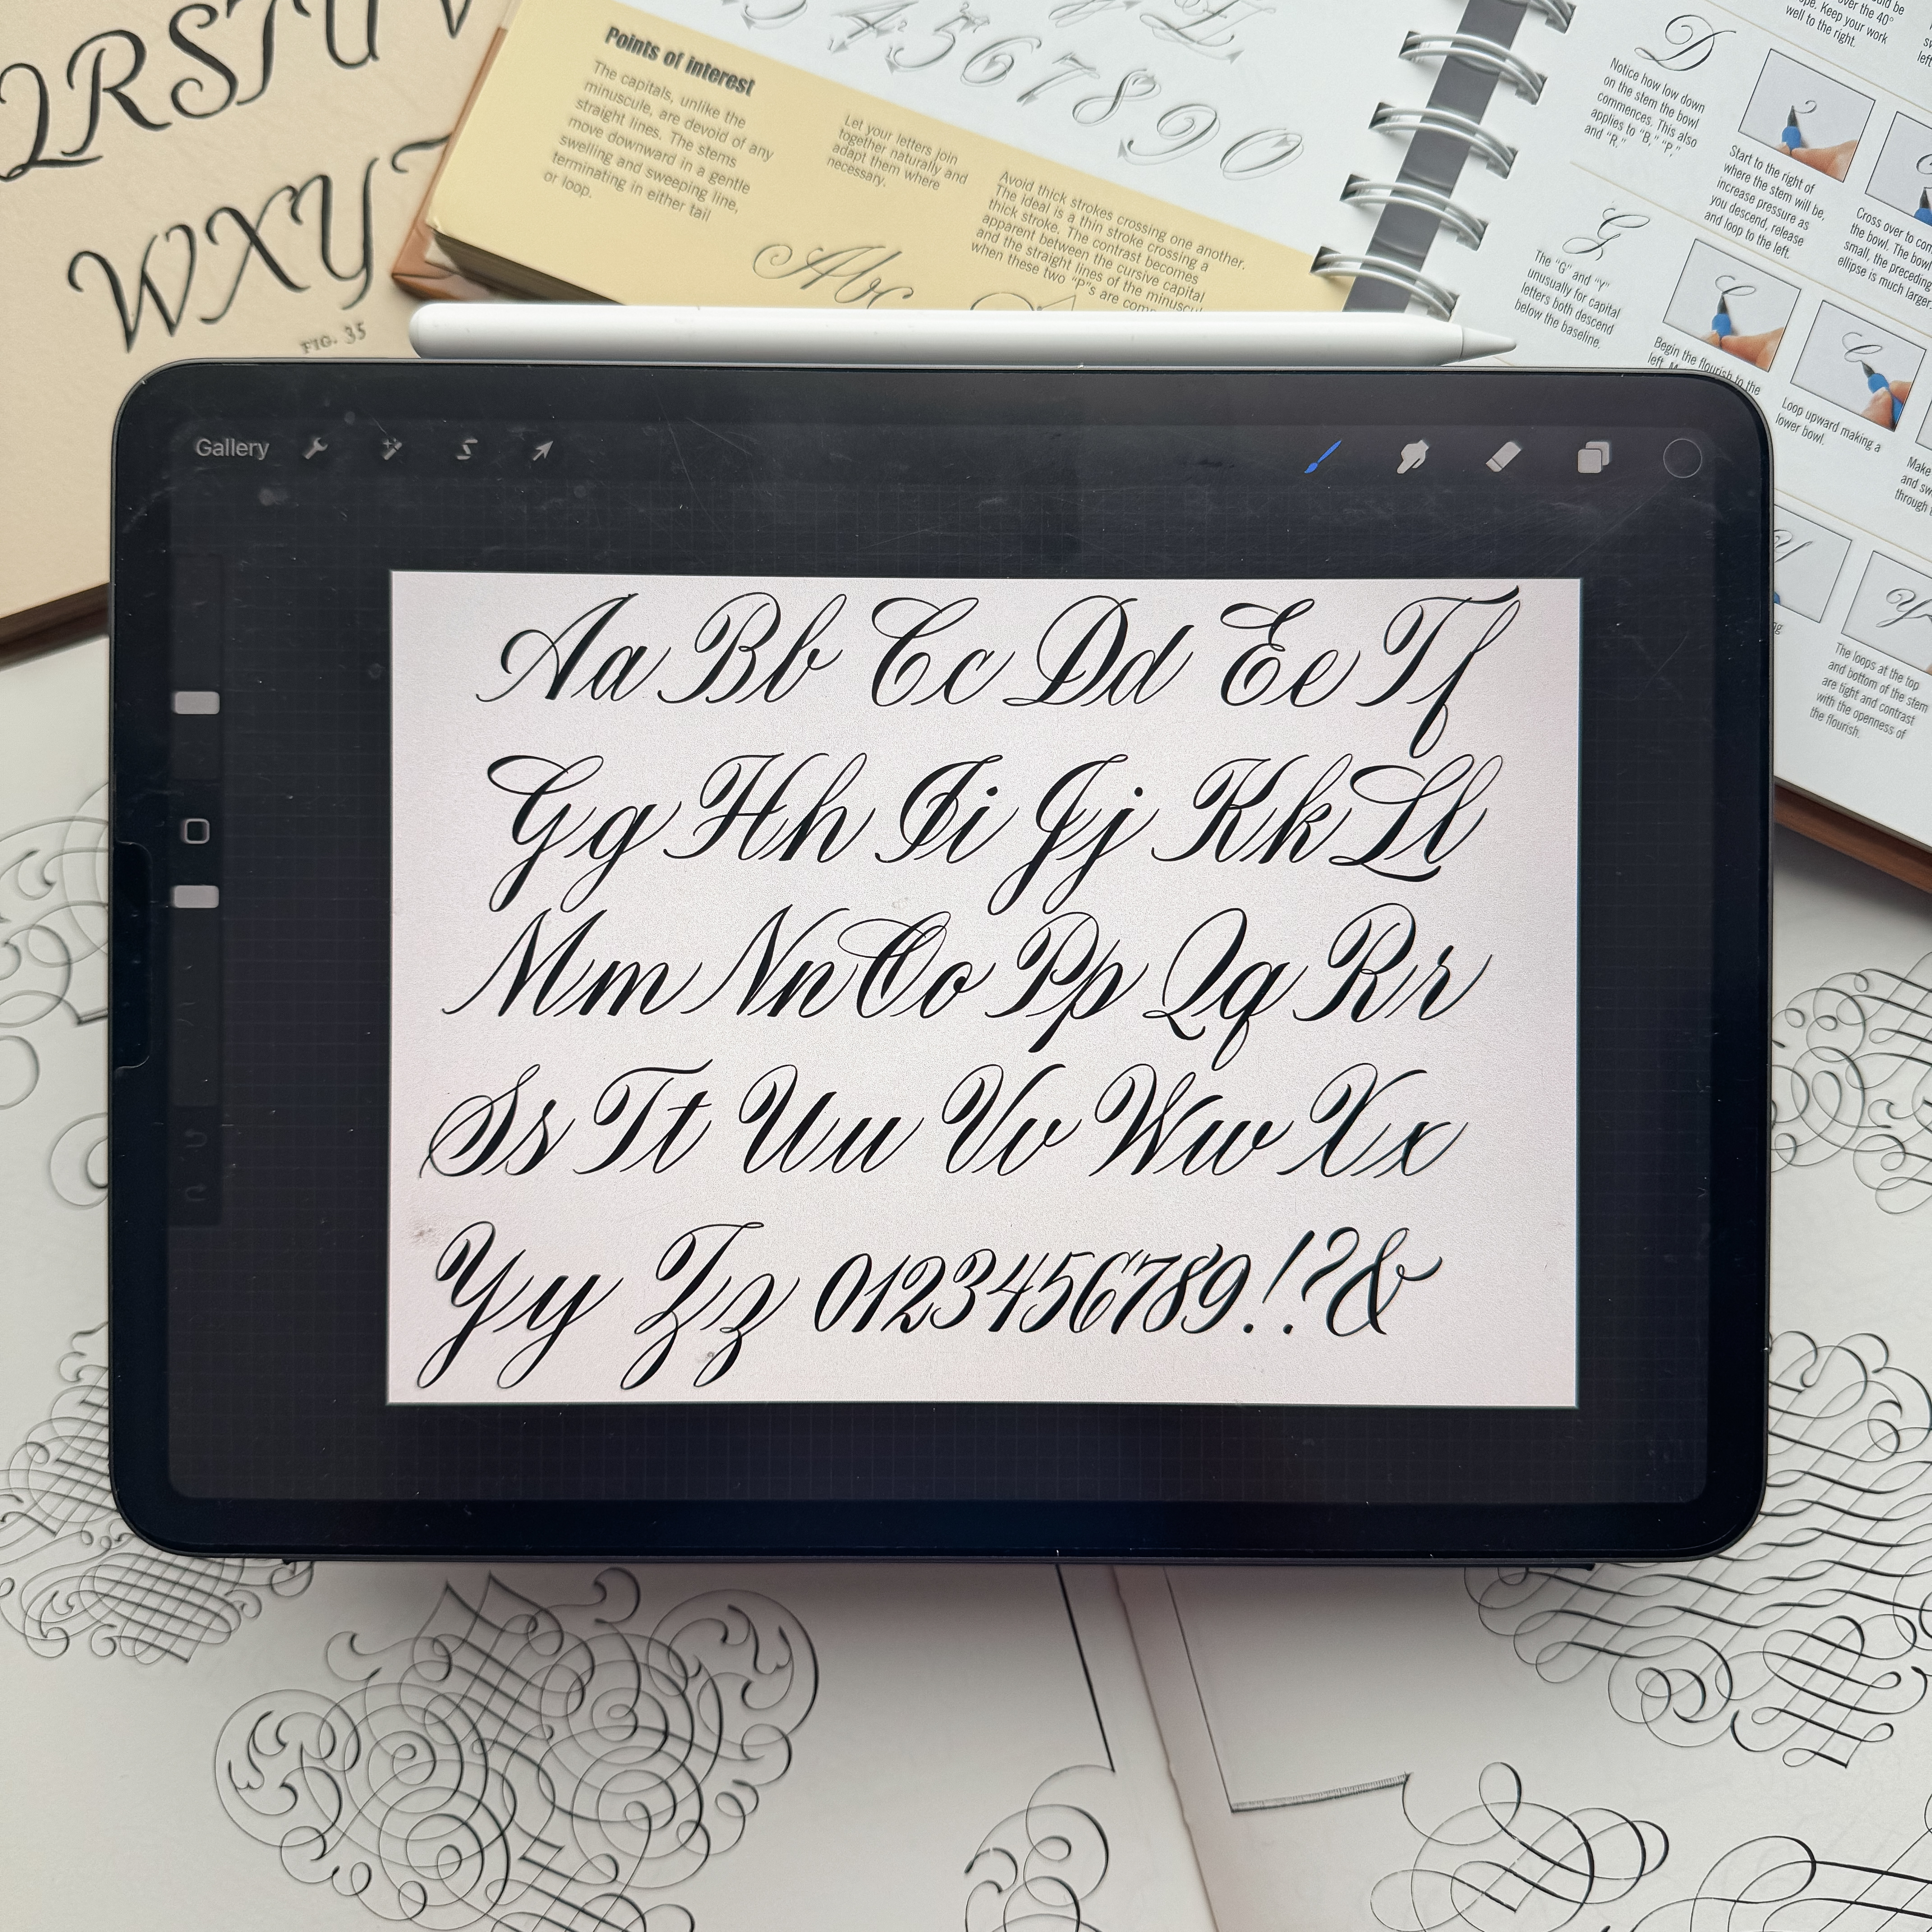 QRSTUV
WXYZ
FIG. 35
Points of interest
The capitals, unlike the
minuscule, are devoid of any
straight lines. The stems
move downward in a gentle
swelling and sweeping line,
terminating in either tail
or loop.
Let your letters join
together naturally and
adapt them where
necessary.
Avoid thick strokes crossing one another.
The ideal is a thin stroke crossing a
thick stroke. The contrast becomes
apparent between the cursive capital
and the straight lines of the minuscul
when these two "P"s are com
Abc
3 4 5 6 7 8 9 0
over the 40°
Keep your work
well to the right.
D
Notice how low down
on the stem the bowl
commences. This also
applies to "B," "P,"
and "R."
Start to the right of
where the stem will be,
increase pressure as
you descend, release
and loop to the left.
Cross over to
the bowl. The bowl
small, the preceding
ellipse is much larger.
G
The "G" and "Y"
unusually for capital
letters both descend
below the baseline.
Begin the flourish to the
left.
Loop upward making a
lower bowl.
Make
and
through
The loops at the top
and bottom of the stem
are tight and contrast
with the openness of
the flourish.
Gallery
Aa Bb Cc Dd Ee Tf
Gg Hh Ii Jj Kk Ll
Mm Nn Oo Pp Qq Rr
Ss Tt Uu Vv Ww Xx
Yy Zz 0123456789.!?&